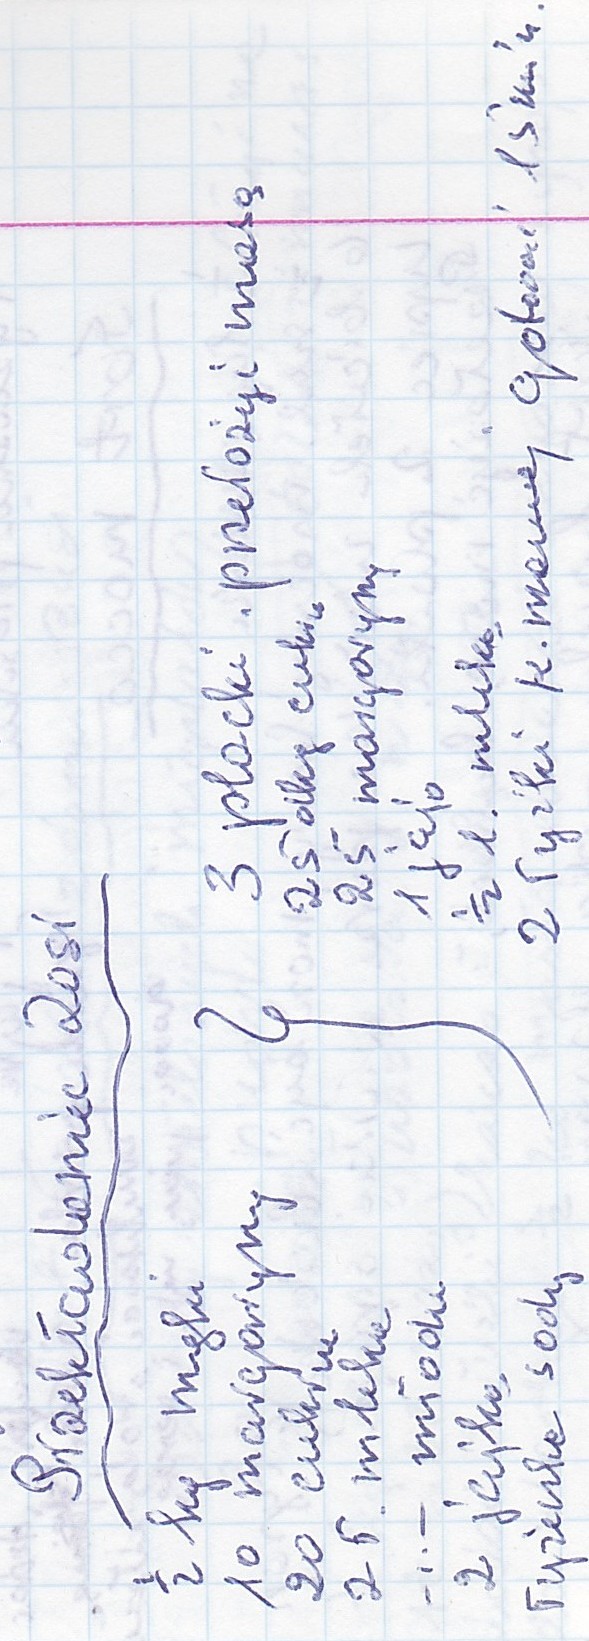 Przekładaniec Zosi
½ kg mąki
10 margaryny
20 cukru
2 ł. mleka
-"- miodu
2 jajka
łyżeczka sody
3 placki . przełożyć masą
25 dkg cukru
25 margaryny
1 jajo
½ l. mleka
2 łyżki k. mannej gotować 15 min.